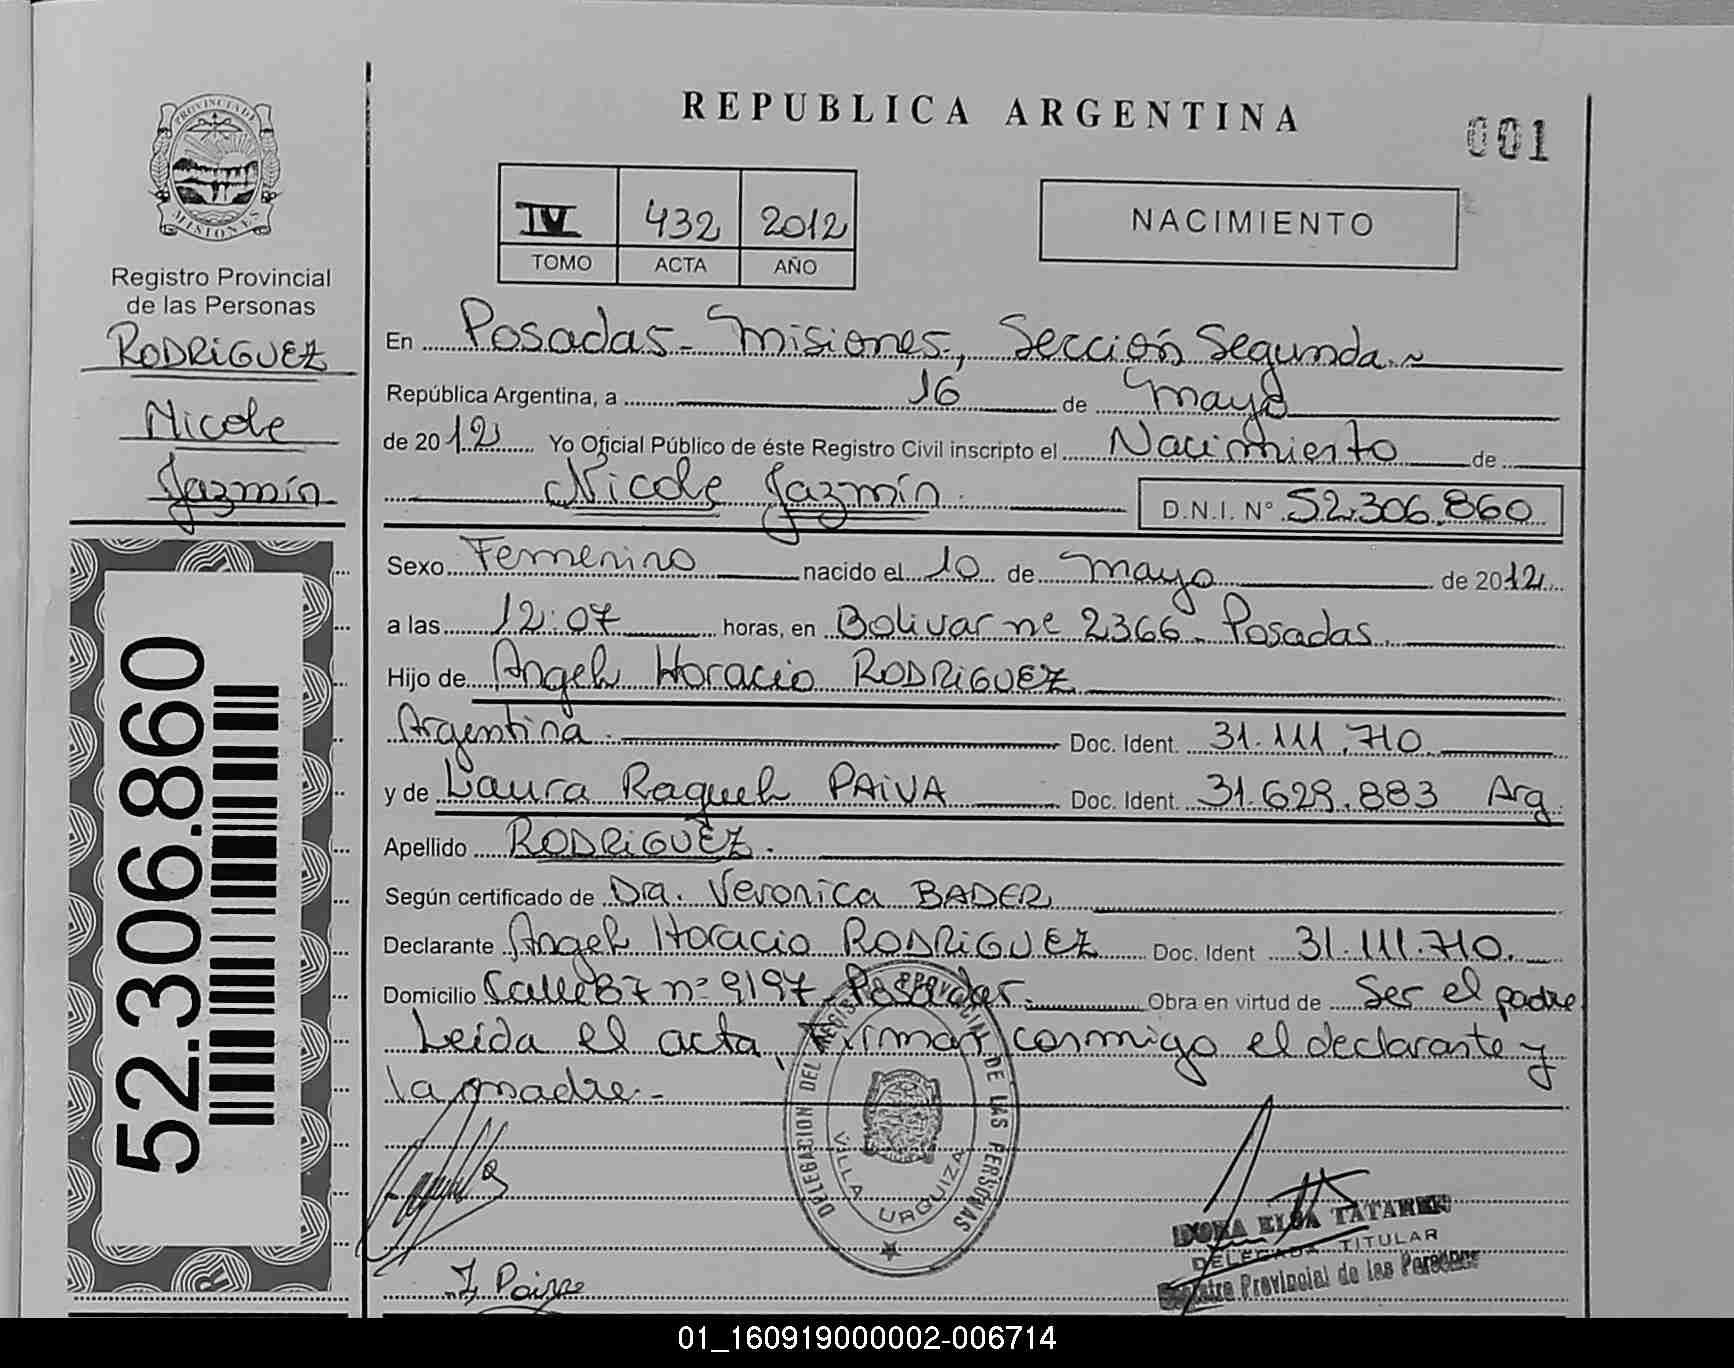 REPUBLICA ARGENTINA
001
PROVINCIA DE
MISIONES
Registro Provincial
de las Personas
RODRiGUEZ
Nicole
Jazmín
52.306.860
IV 432 2012
TOMO ACTA AÑO
NACIMIENTO
En Posadas - Misiones, Sección Segunda.
República Argentina, a 16 de Mayo
de 2012 Yo Oficial Público de éste Registro Civil inscripto el Nacimiento de
Nicole Jazmín. D.N.I. N° 52.306.860
Sexo Femenino nacido el 10 de mayo de 2012
a las 12:07 horas, en Bolivar nº 2366 - Posadas.
Hijo de Angel Horacio RODRiGUEZ
Argentina. Doc. Ident. 31.111.710
y de Laura Raquel PAiVA Doc. Ident. 31.629.883 Arg.
Apellido RODRiGUEZ.
Según certificado de Dra. Veronica BADER
Declarante Angel Horacio RODRiGUEZ Doc. Ident 31.111.710.
Domicilio Calle 87 nº 9197 - Posadas. Obra en virtud de Ser el padre
Leída el acta, firman conmigo el declarante y
la madre.-
DELEGACION DEL REGISTRO PROVINCIAL DE LAS PERSONAS
VILLA URQUIZA
DELEGADA TITULAR
Registro Provincial de las Personas
01_160919000002-006714